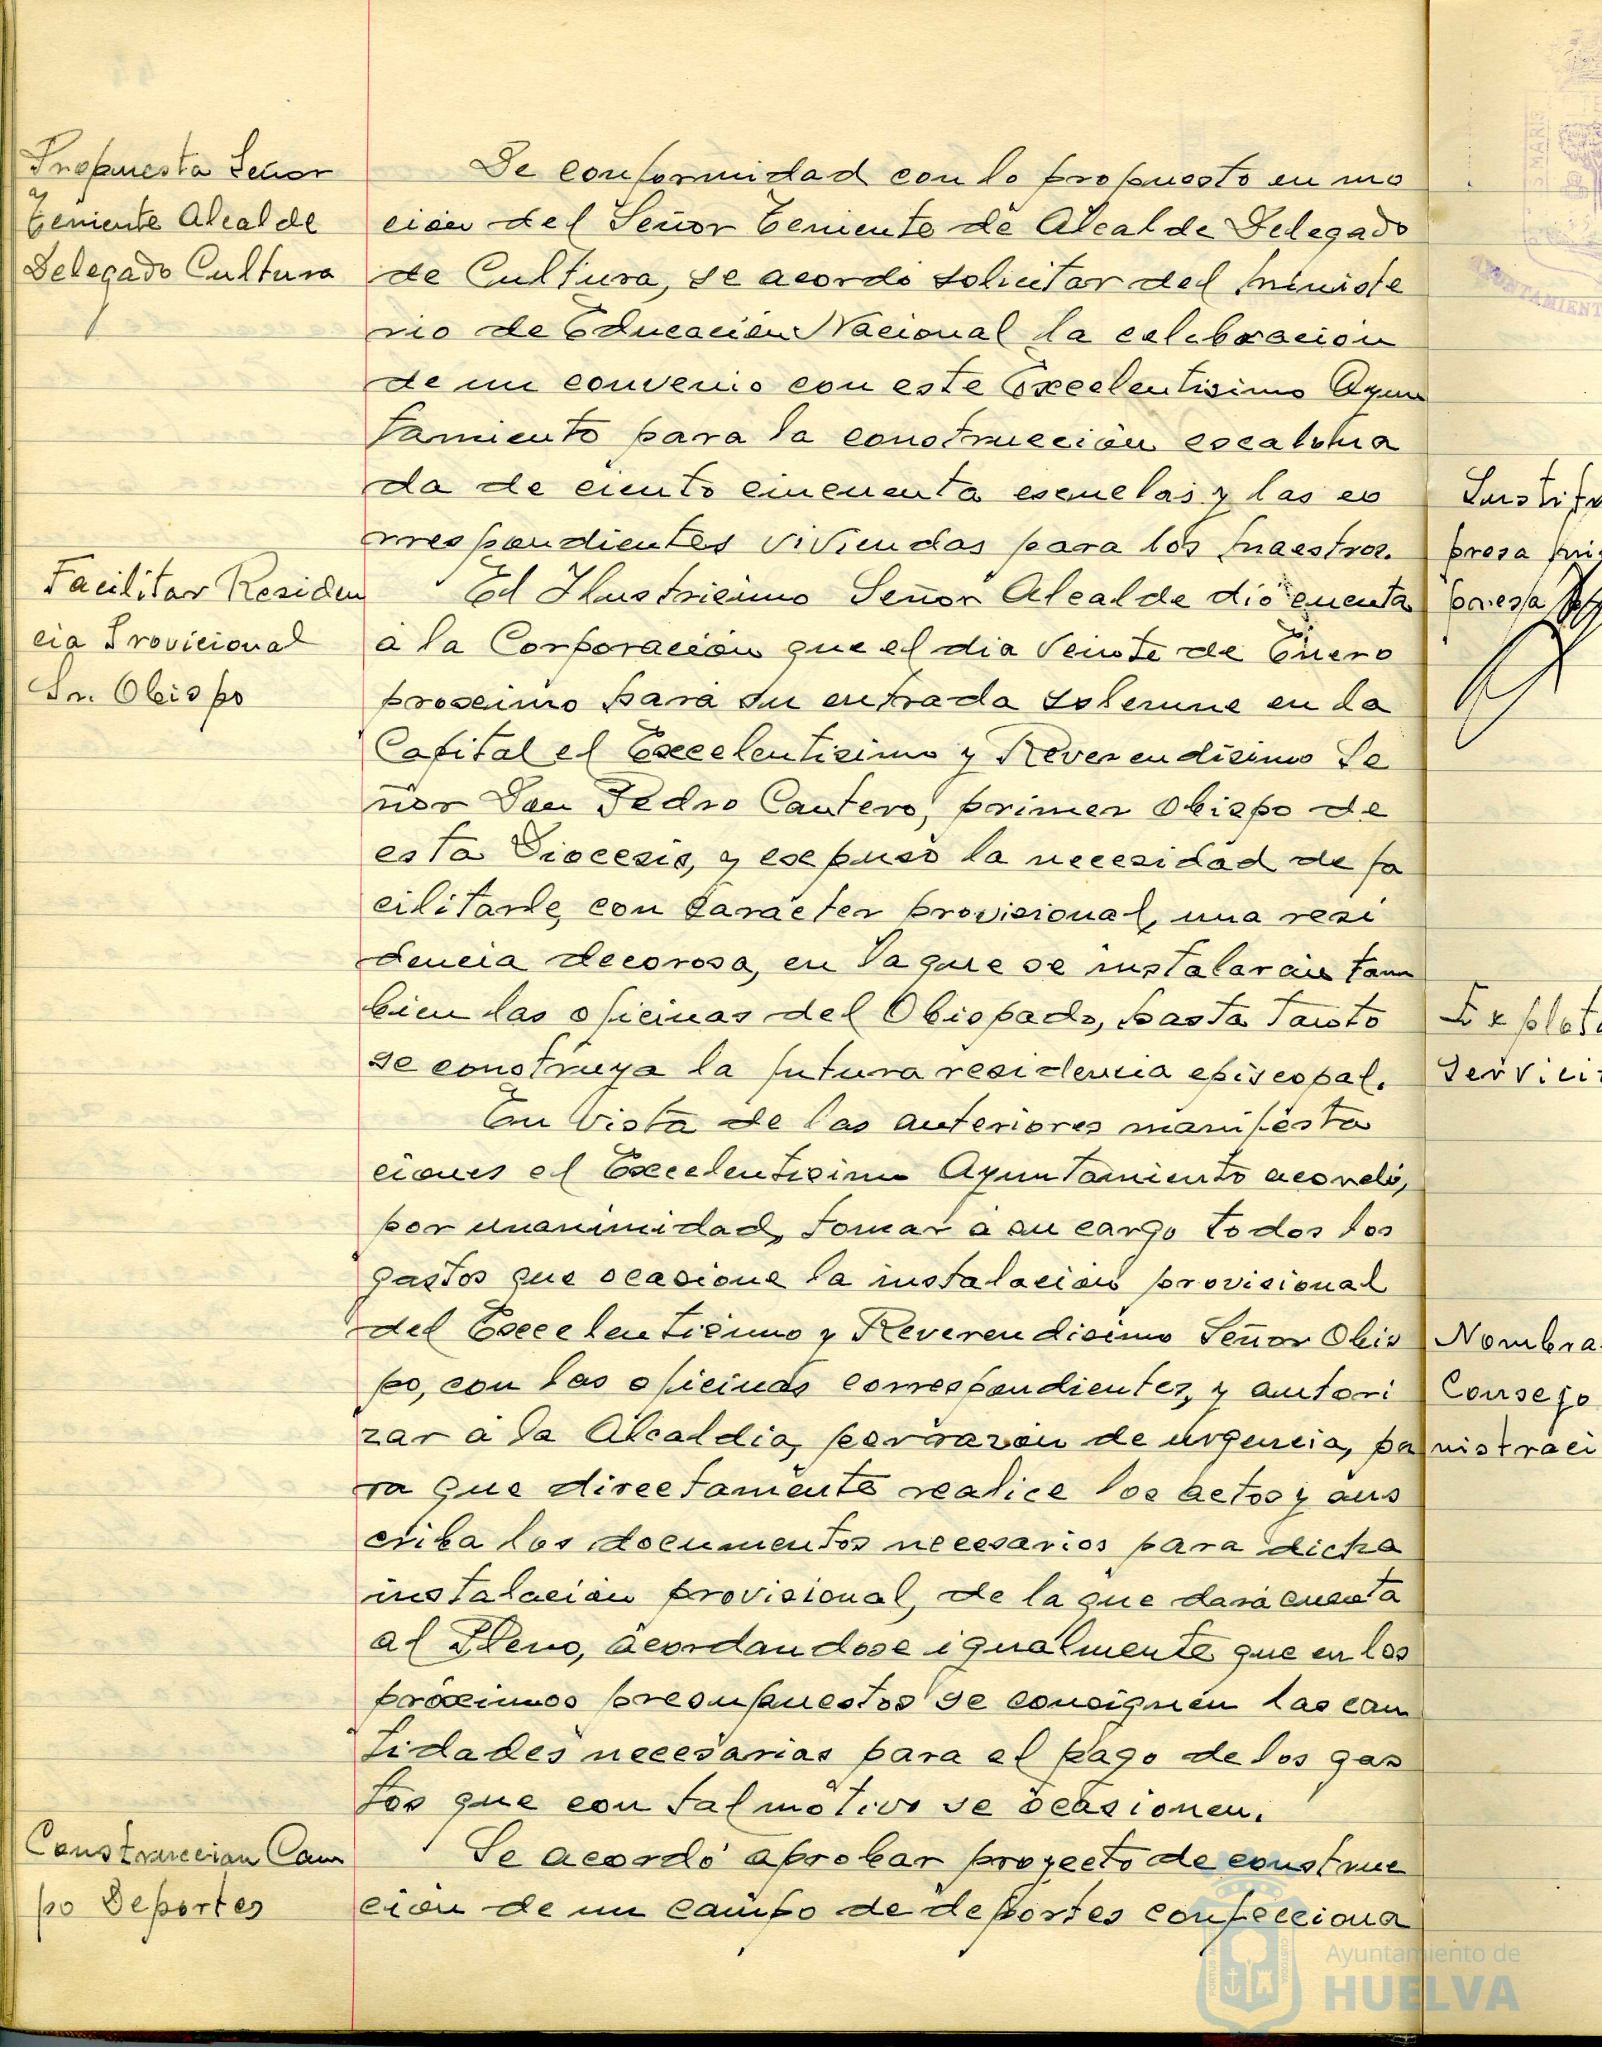 Propuesta Señor
Teniente Alcalde
Delegado Cultura
De conformidad con lo propuesto en mo
ción del Señor Teniente de Alcalde Delegado
de Cultura, se acordó solicitar del Ministe
rio de Educación Nacional la celebración
de un convenio con este Excelentisimo Ayun
tamiento para la construcción escalona
da de ciento cincuenta escuelas y las co
rrespondientes viviendas para los maestros.
Facilitar Residen
cia Provicional
Sr. Obispo
El Ilustrisimo Señor Alcalde dió cuenta
a la Corporación que el dia veinte de Enero
proximo hará su entrada solemne en la
Capital el Excelentisimo y Reverendisimo Se
ñor Don Pedro Cantero, primer Obispo de
esta Diocesis, y expuso la necesidad de fa
cilitarle, con caracter provisional, una resi
dencia decorosa, en la que se instalarán tam
bien las oficinas del Obispado, hasta tanto
se construya la futura residencia episcopal.
En vista de las anteriores manifesta
ciones el Excelentisimo Ayuntamiento acordó,
por unanimidad, tomar a su cargo todos los
gastos que ocasione la instalación provisional
del Excelentisimo y Reverendisimo Señor Obis
po, con las oficinas correspondientes, y autori
zar a la Alcaldia, por razón de urgencia, pa
ra que directamente realice los actos y sus
criba los documentos necesarios para dicha
instalación provisional, de la que dará cuenta
al Pleno, acordandose igualmente que en los
próximos presupuestos se consignen las can
tidades necesarias para el pago de los gas
tos que con tal motivo se ocasionen.
Construccion Cam
po Deportes
Se acordó aprobar proyecto de construc
ción de un campo de deportes confecciona
presa
Explota
servici
Nombra
Consejo
nistraci
Ayuntamiento de
HUELVA